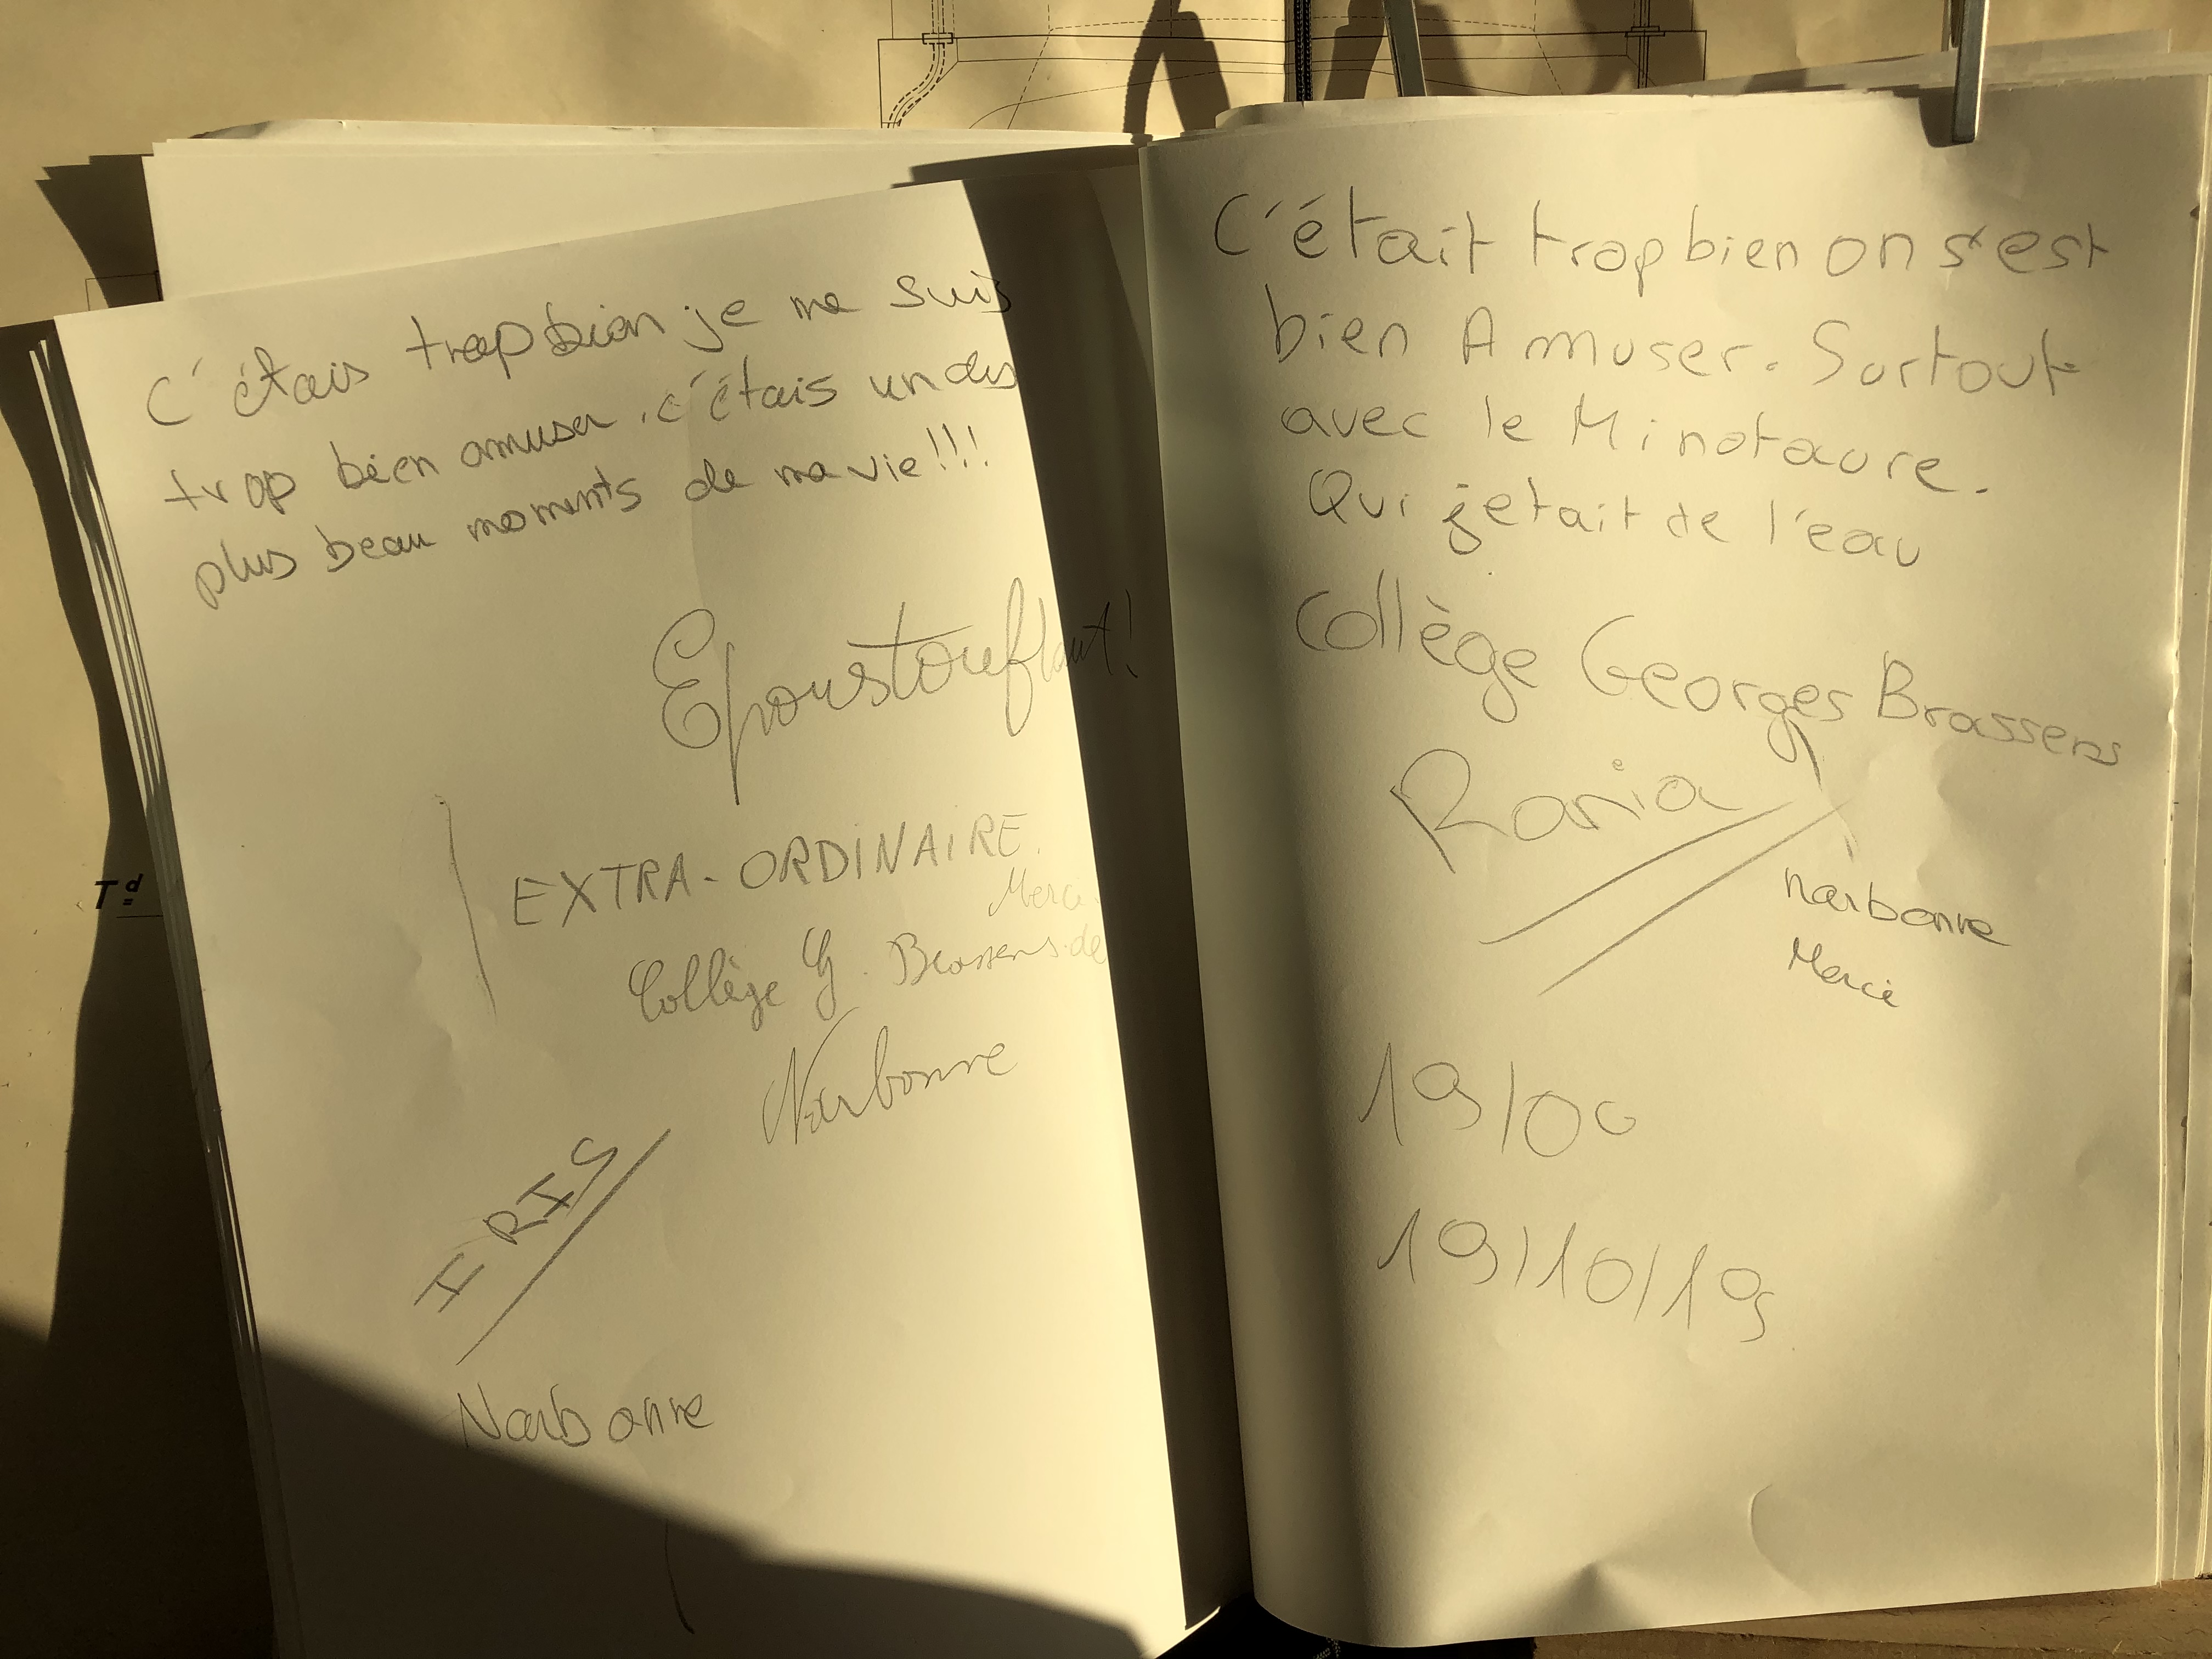 C'étais trop bien je me suis
trop bien amuser. c'étais un des
plus beau moments de ma vie!!!
Epoustouflant!
EXTRA-ORDINAIRE.
Merci.
Collège G. Brassens de
Narbonne
IRIS
Narbonne
T d
C'était trop bien on s'est
bien Amuser. Surtout
avec le Minotaure.
Qui jetait de l'eau
Collège Georges Brassens
Rania
Narbonne
Merci
19/00
19/10/19